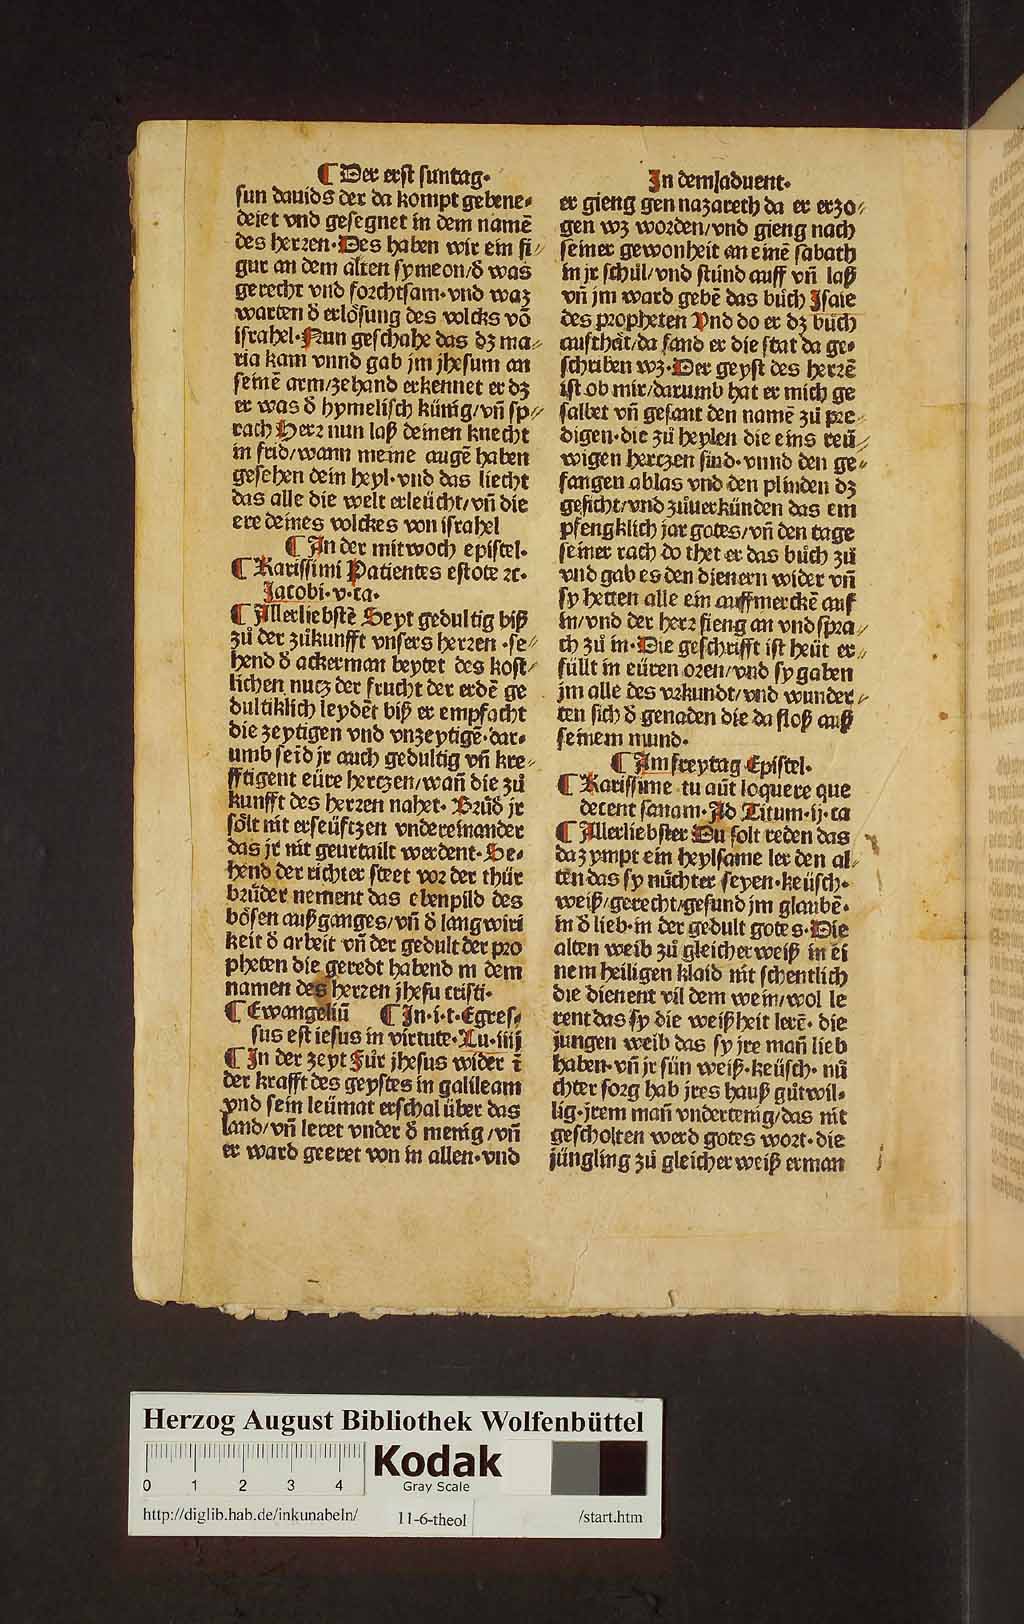 ¶ Der erst suntag·
sun dauids der da kompt gebene⸗
deiet vnd gesegnet in dem namē
des herren·Des haben wir ein fi⸗
gur an dem alten symeon/đ was
gerecht vnd forchtsam·vnd waz
warten đ erlösung des volcks vō
israhel·Nun geschahe das dz ma⸗
ria kam vnnd gab jm jhesum an
seinē arm/zehand erkennet er dz
er was đ hymelisch künig/vñ sp⸗
rach Herr nun laß deinen knecht
in frid/wann meine augē haben
gesehen dein heyl·vnd das liecht
das alle die welt erleücht/vñ die
ere deines volckes von israhel
¶ In der mitwoch epistel·
¶ Karissimi Patientes estote ꝛc·
Jacobi·v·ca·
¶ Allerliebstē Seyt gedultig biß
zů der zůkunfft vnsers herren·se⸗
hend đ ackerman beytet des kost⸗
lichen nutz der frucht der erdē ge
dultiklich leydēt biß er empfacht
die zeytigen vnd vnzeytigē·dar⸗
umb seid jr auch gedultig vñ kre⸗
fftigent eüre hertzen/wañ die zů
kunfft des herren nahet· Brůđ jr
sölt nit erseüftzen vndereinander
das jr nit geurtailt werdent·Se⸗
hend der richter steet vor der thür
brüder nement das ebenpild des
bösen außganges/vñ đ langwiri
keit đ arbeit vñ der gedult der pro
pheten die geredt habend in dem
namen des herren jhesu cristi·
¶ Ewangeliū ¶ In·i·t·Egres⸗
sus est iesus in virtute·Lu·iiij
¶ In der zeyt Fůr jhesus wider ī
der krafft des geystes in galileam
vnd sein leümat erschal über das
land/vñ leret vnder đ menig/vñ
er ward geeret von in allen·vnd
In dem aduent·
er gieng gen nazareth da er erzo⸗
gen wz worden/vnd gieng nach
seiner gewonheit an einē sabath
in jr schůl/vnd stůnd auff vñ laß
vñ jm ward gebē das bůch Isaie
des propheten Vnd do er dz bůch
aufthät/da fand er die stat da ge⸗
schriben wz·Der geyst des herrē
ist ob mir/darumb hat er mich ge
salbet vñ gesant den namē zů pre⸗
digen·die zů heylen die eins reü⸗
wigen hertzen sind·vnnd den ge⸗
fangen ablas vnd den plinden dz
gesicht/vnd zůuerkünden das em
pfengklich jar gotes/vñ den tage
seiner rach do thet er das bůch zů
vnd gab es den dienern wider vñ
sy hetten alle ein auffmerckē auf
in/vnd der herr fieng an vnd spra⸗
ch zů in·Die geschrifft ist heüt er⸗
füllt in eüren oren/vnd sy gaben
jm alle des vrkundt/vnd wunder⸗
ten sich đ genaden die da floß auß
seinem mund·
¶ Am freytag Epistel·
¶ Karissime tu aūt loquere que
decent sanam·Ad Titum·ij·ca
¶ Allerliebster Du solt reden das
da zympt ein heylsame ler den al⸗
ten das sy nůchter seyen·keüsch·
weiß/gerecht/gesund jm glaubē·
in đ lieb·in der gedult gotes·Die
alten weib zů gleicher weiß in ei
nem heiligen klaid nit schentlich
die dienent vil dem wein/wol le
rent das sy die weißheit lerē·die
jungen weib das sy jre mañ lieb
haben·vñ jr sün weiß·keüsch·nů
chter sorg hab jres hauß gůtwil⸗
lig·jrem mañ vndertenig/das nit
gescholten werd gotes wort·die
jüngling zů gleicher weiß erman
Herzog August Bibliothek Wolfenbüttel
0 1 2 3 4
Kodak
Gray Scale
http://diglib.hab.de/inkunabeln/ 11-6-theol /start.htm